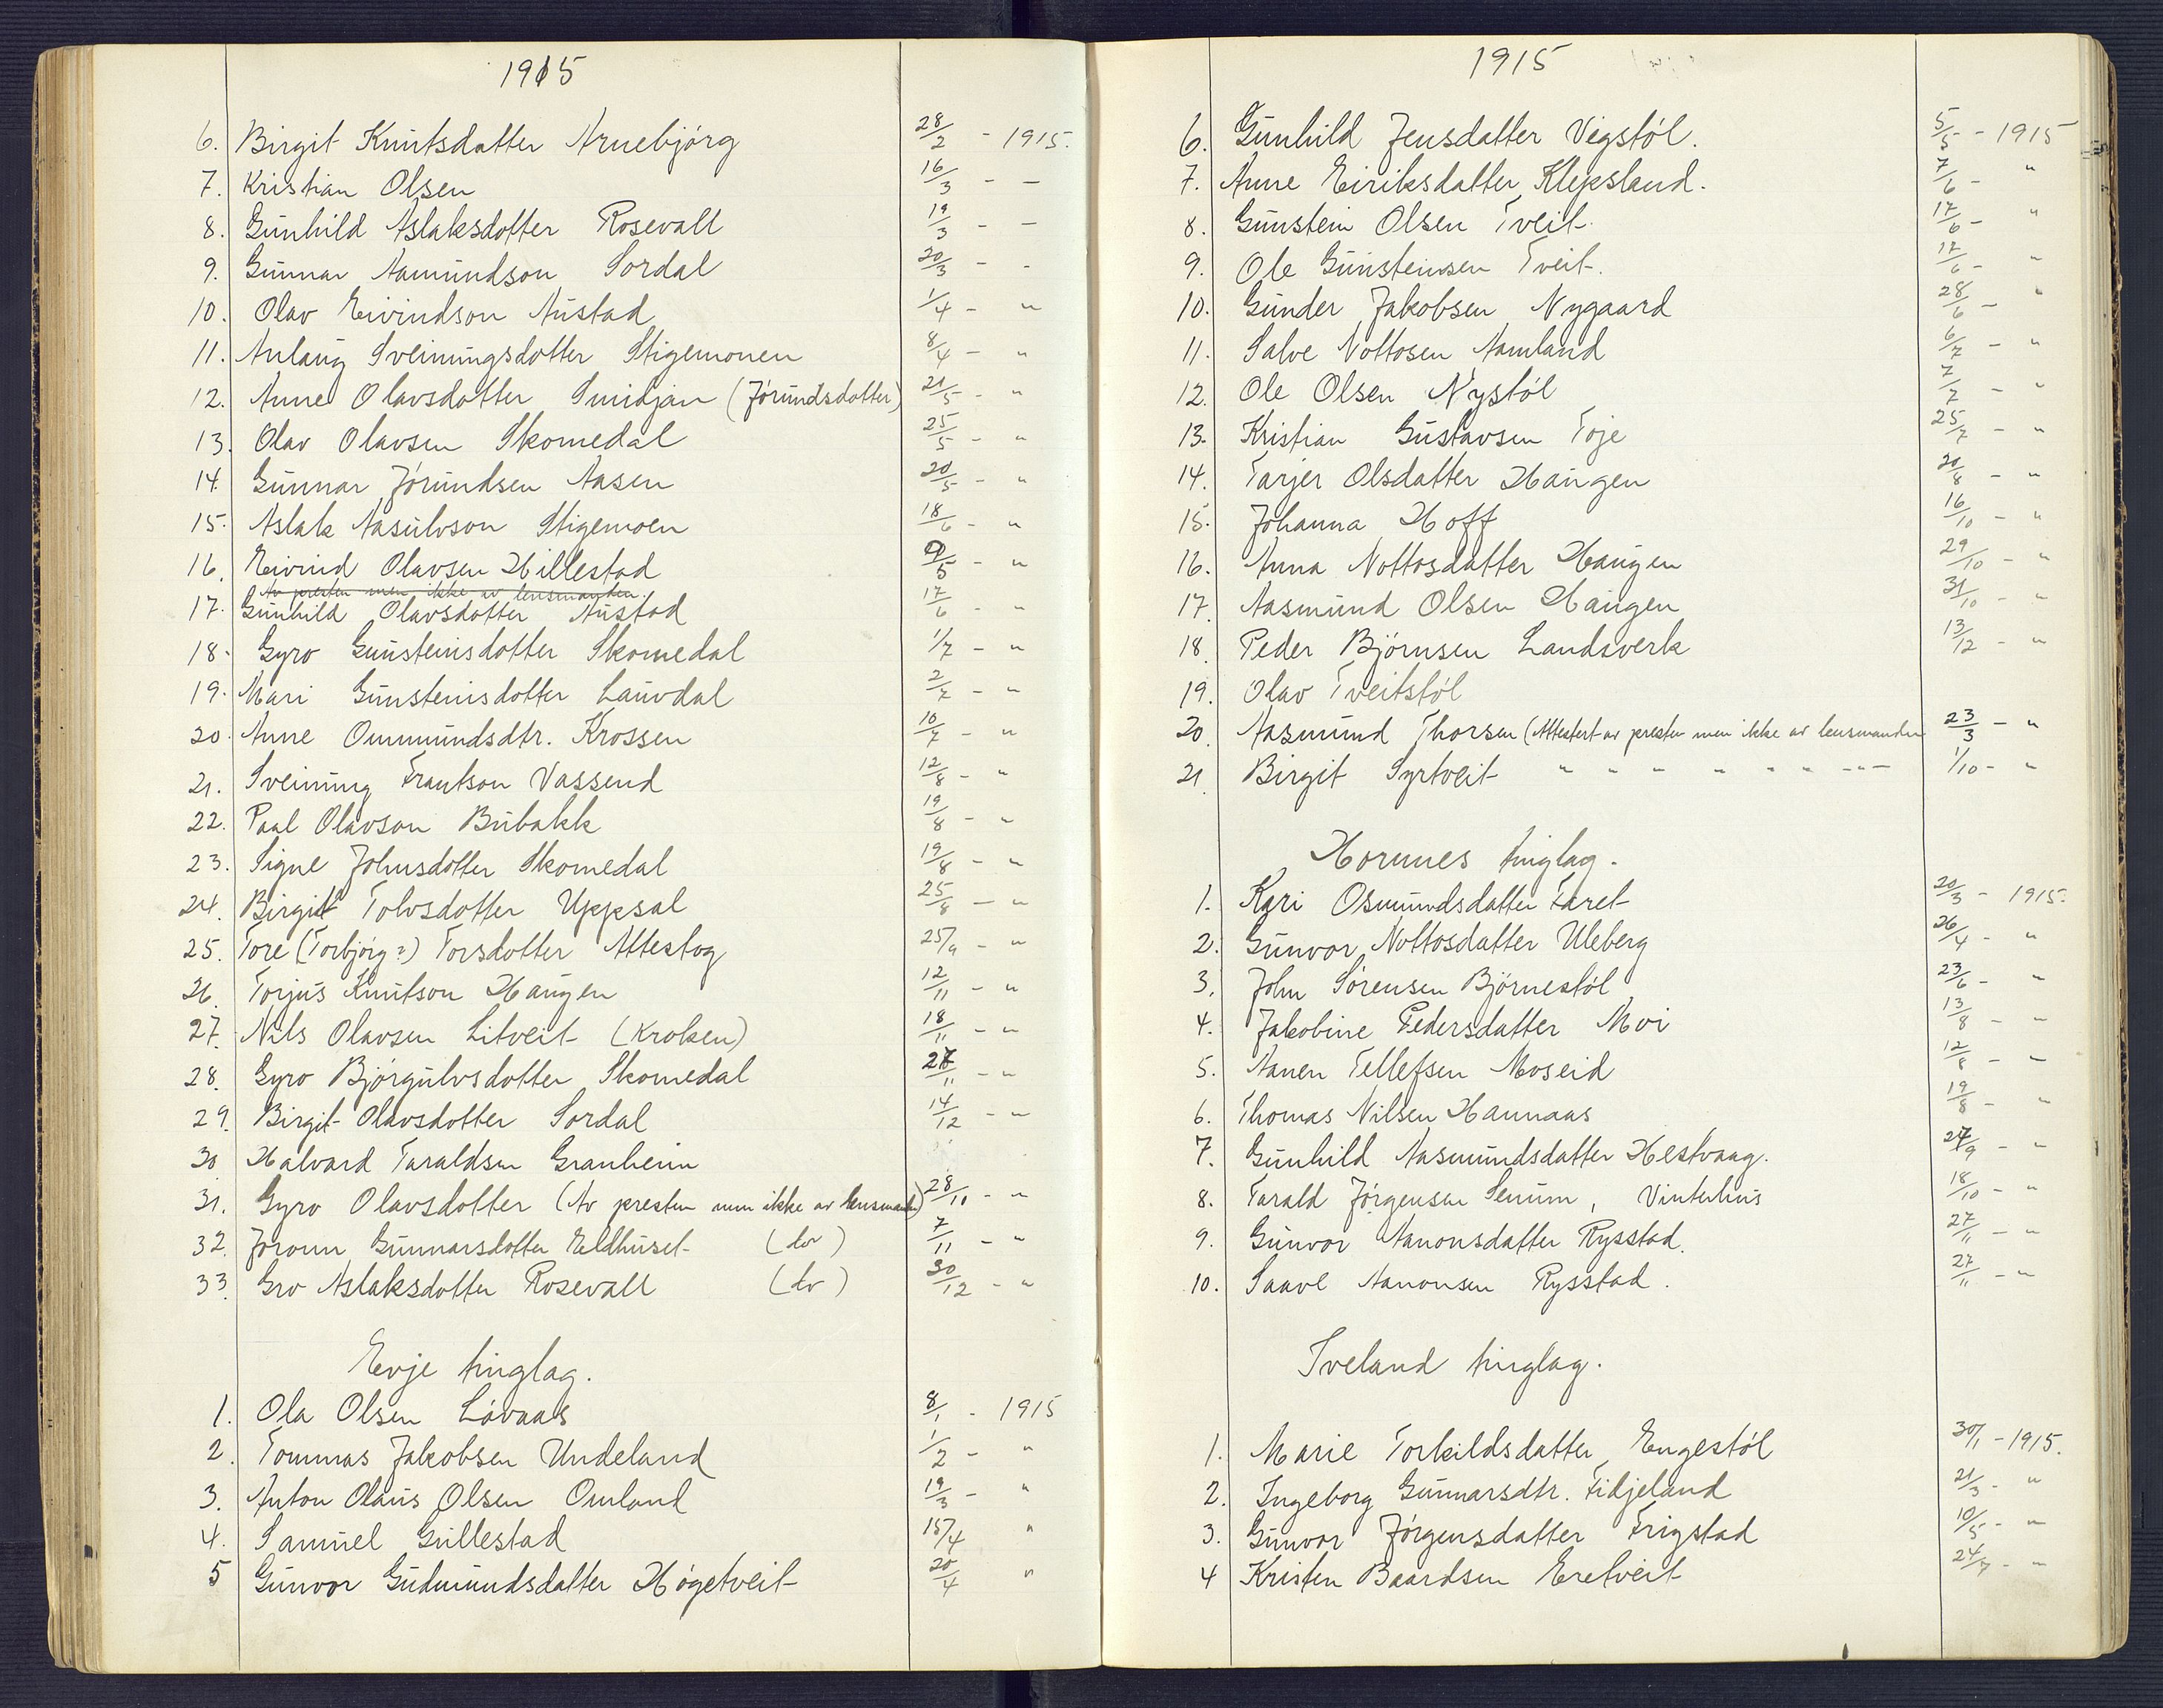 1915
6. Birgit Knutsdatter Arnebjörg 28/2 - 1915.
7. Kristian Olsen 16/3 - -
8. Gunhild Aslaksdotter Rosevall 19/3 - -
9. Gunnar Aamundson Sordal 20/3 - -
10. Olav Eivindson Austad 1/4 - "
11. Anlaug Sveinungsdotter Stigemonen 8/4 - "
12. Anne Olavsdotter Smidjan (Jörundsdotter) 21/5 - "
13. Olav Olavsen Skomedal 25/5 - "
14. Gunnar Jörundsen Aasen 20/5 - "
15. Aslak Aasulvson Stigemoen 18/6 - "
16. Eivind Olavsen Hillestad 9/5 - "
Av presten men ikke av lensmanden.
17. Gunhild Olavsdotter Austad 17/6 - "
18. Gyro Gunsteinsdotter Skomedal 1/7 - "
19. Mari Gunsteinsdotter Lauvdal 2/7 - "
20. Anne Ommundsdtr. Krossen 10/7 - "
21. Sveinung Frantson Vassend 12/8 - "
22. Paal Olavson Bubakk 19/8 - "
23. Signe Johnsdotter Skomedal 19/8 - "
24. Birgit Tolvsdotter Uppsal 25/8 - "
25. Tore (Torbjörg?) Torsdotter Attestog 25/9 - "
26. Torjus Knutson Haugen 12/11 - "
27. Nils Olavsen Litveit (Kroken) 18/11 - "
28. Gyro Björgulvsdotter Skomedal 27/11 - "
29. Birgit Olavsdotter Sordal 14/12 - "
30 Halvard Taraldsen Granheim
31. Gyro Olavsdotter (Av presten men ikke av lensmanden) 28/10 - "
32. Joronn Gunnarsdotter Eldhuset (do) 7/11 - "
33. Gro Aslaksdotter Rosevall (do) 30/12 - "
Evje tinglag.
1. Ola Olsen Lövaas 8/1 - 1915
2. Tommas Jakobsen Undeland 1/2 - "
3. Anton Olaus Olsen Omland 19/3 - "
4. Samuel Gullestad 15/4 "
5 Gunvor Gudmundsdatter Högetveit 20/4 "
1915
6. Gunhild Jensdatter Vegstöl. 5/5 - 1915
7. Anne Eiriksdatter Klepsland. 7/6 - "
8. Gunstein Olsen Tveit. 17/6 - "
9. Ole Gunsteinsen Tveit. 17/6 - "
10. Gunder Jakobsen Nygaard 28/6 - "
11. Salve Nottosen Aamland 6/7 - "
12. Ole Olsen Nystöl 7/7 - "
13. Kristian Gustavsen Toje 25/7 - "
14. Tarjer Olsdatter Haugen 20/8 - "
15. Johanna Hoff 16/10 - "
16. Anna Nottosdatter Haugen 29/10 - "
17. Aasmund Olsen Haugen 31/10 - "
18. Peder Björnsen Landsverk 13/12 - "
19. Olav Tveitstöl
20. Aasmund Thorsen (Attestert av presten men ikke av lensmanden 23/3 - "
21. Birgit Syrtveit " " " " " " " 1/10 - "
Hornnes tinglag.
1. Kari Osmundsdatter Faret 20/3 - 1915.
2. Gunvor Nottosdatter Uleberg 26/4 - "
3. John Sörensen Björnestöl 23/6 - "
4. Jakobine Pedersdatter Moi 13/8 - "
5. Aanen Tellefsen Moseid 12/8 - "
6. Thomas Nilsen Hannaas 19/8 - "
7. Gunhild Aasmundsdatter Hestvaag. 27/9 - "
8. Tarald Jörgensen Senum, Vinterhus 18/10 - "
9. Gunvor Aanonsdatter Rysstad. 27/11 - "
10. Saavl Aanonsen Rysstad. 27/11 - "
Iveland tinglag.
1. Marie Torkildsdatter Engestöl 30/1 - 1915.
2. Ingeborg Gunnarsdtr. Fidjeland 21/3 - "
3. Gunvor Jörgensdatter Frigstad 10/5 - "
4 Kristen Baardsen Eretveit 24/7 - "